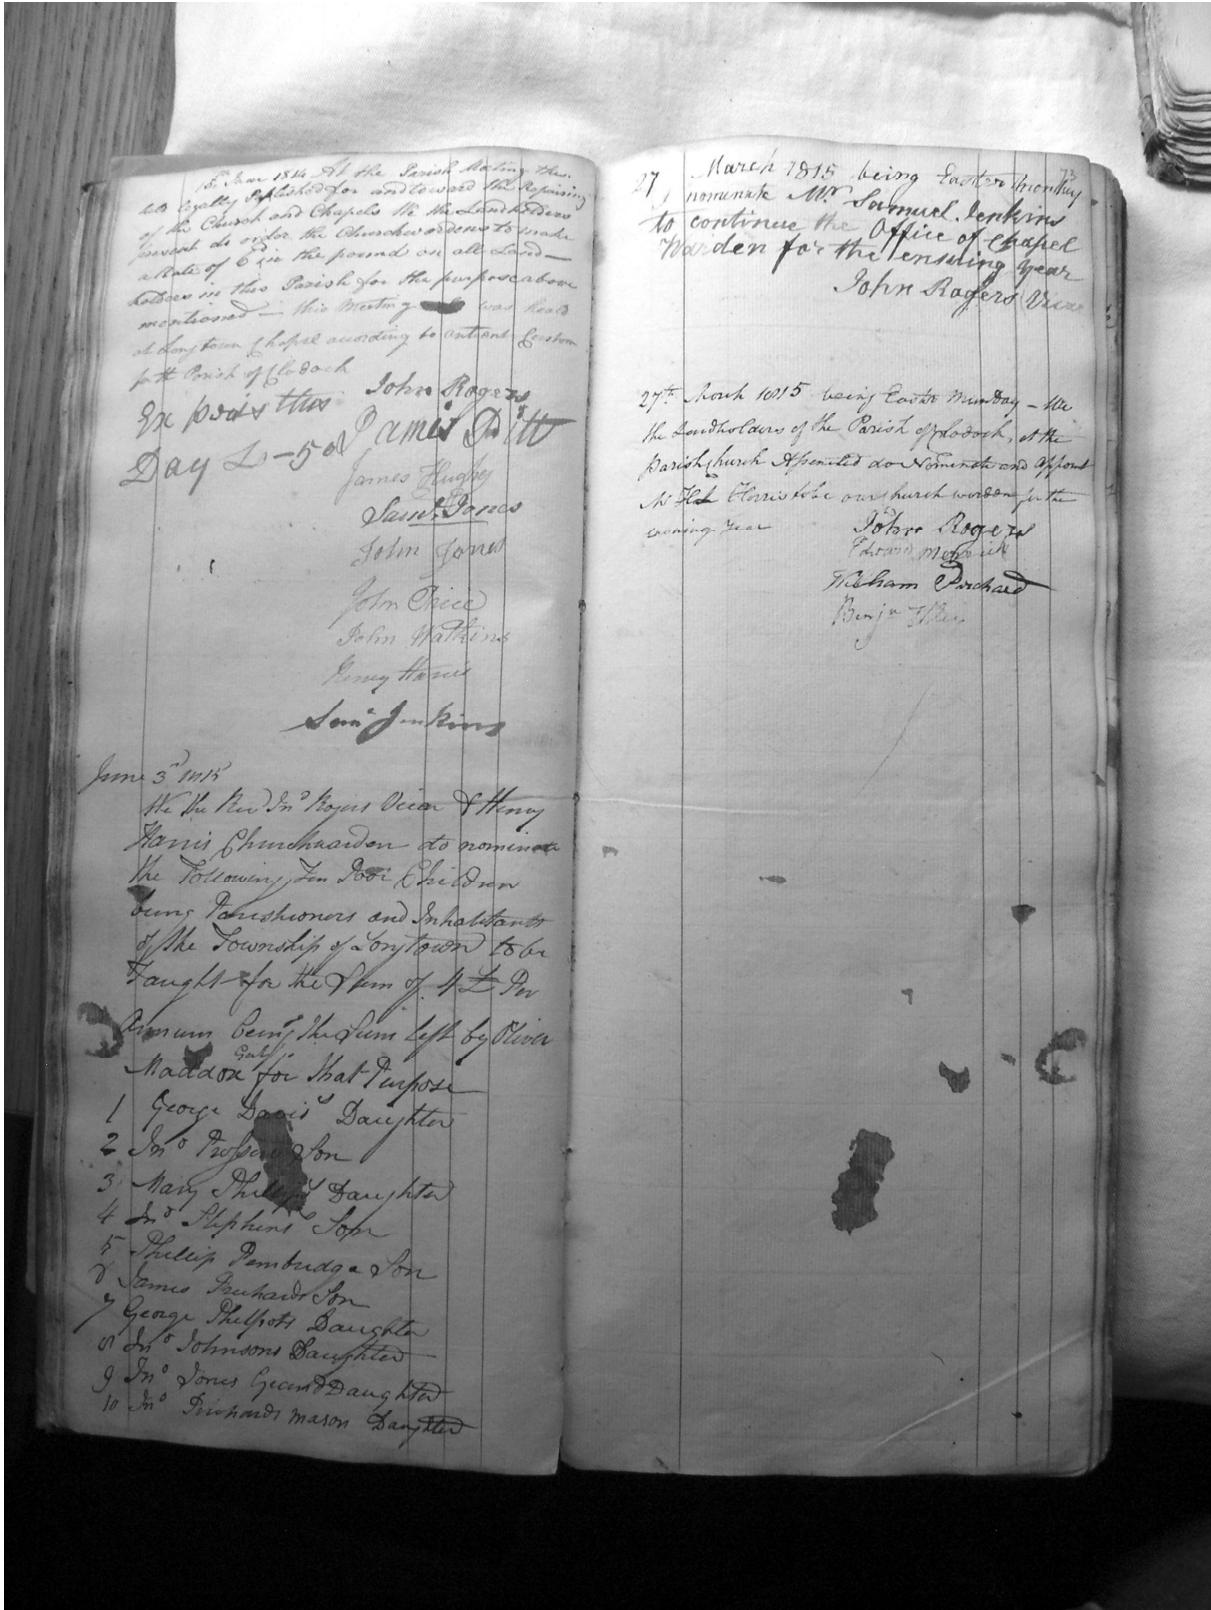 June 1814 At the Parish Meeting this
legally Published for and toward the Repairing
of the Church and Chapels We the Landholders
present do order the Churchwardens to make
a Rate of 6d in the pound on all Land
holders in this Parish for the purpose above
mentioned — this Meeting was heald
at Longtown Chapel according to antient Custom
for the Parish of Clodock
Ex peais this John Rogers
Day £ - 5 James Pitt
James Hughs
Saml. Jones
John Jones
John Price
John Watkins
Henry Harris
Saml Jenkins
June 3d 1815
We the Rev Jno Rogers Vicar & Henry
Harris Churchwarden do nominate
the Following Ten Poor Children
being Parishioners and Inhabitants
of the Township of Longtown to be
Taught for the Sum of 4 £ Per
Annum being the Sum left by Oliver
Maddox for that Purpose
1 George Davis's Daughter
2 Jno Prosser Son
3 Mary Phillips's Daughter
4 Jno Stephens's Son
5 Phillip Pembridge Son
6 James Prichards Son
7 George Phelpots Daughter
8 Jno Johnsons Daughter
9 Jno Jones Grand Daughter
10 Jno Prichards mason Daughter
73
27 March 1815 being Easter monday
I nominate Mr. Samuel Jenkins
to continue the Office of Chapel
Warden for the ensuing year
John Rogers Vicar
27th March 1815 being Easter Munday - We
the Landholders of the Parish of Clodock, at the
parish church Assembled do Nominate and Appoint
Mr Harris to be our church warden for the
ensuing year John Rogers
Edward Merrick
William Prichard
Benjn